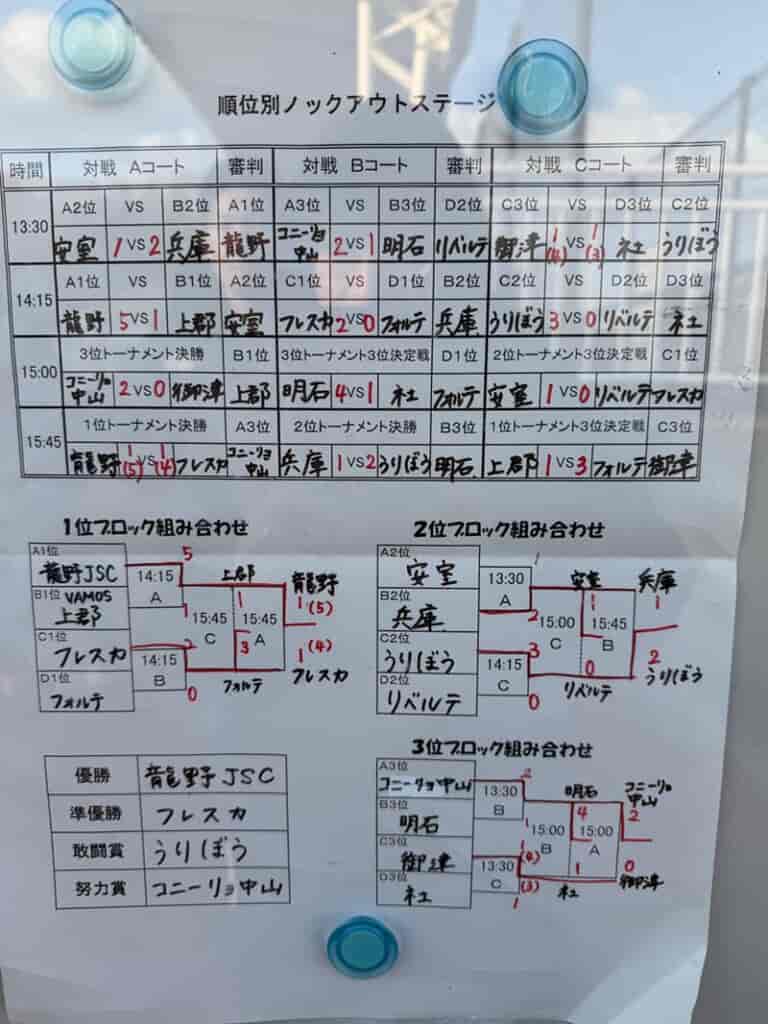 順位別ノックアウトステージ
時間 対戦 Aコート 審判 対戦 Bコート 審判 対戦 Cコート 審判
13:30 A2位 VS B2位 A1位 A3位 VS B3位 D2位 C3位 VS D3位 C2位
安室 1 VS 2 兵庫 龍野 コニーリョ中山 2 VS 1 明石 リベルテ 御津 1(4) VS 1(3) 社 うりぼう
14:15 A1位 VS B1位 A2位 C1位 VS D1位 B2位 C2位 VS D2位 D3位
龍野 5 VS 1 上郡 安室 フレスカ 2 VS 0 フォルテ 兵庫 うりぼう 3 VS 0 リベルテ 社
15:00 3位トーナメント決勝 B1位 3位トーナメント3位決定戦 D1位 2位トーナメント3位決定戦 C1位
コニーリョ中山 2 VS 0 御津 上郡 明石 4 VS 1 社 フォルテ 安室 1 VS 0 リベルテ フレスカ
15:45 1位トーナメント決勝 A3位 2位トーナメント決勝 B3位 1位トーナメント3位決定戦 C3位
龍野 1(5) VS 1(4) フレスカ コニーリョ中山 兵庫 1 VS 2 うりぼう 明石 上郡 1 VS 3 フォルテ 御津
1位ブロック組み合わせ
A1位 龍野JSC
B1位 VAMOS 上郡
C1位 フレスカ
D1位 フォルテ
14:15 A
14:15 B
5
1
2
0
上郡
15:45 C
1
3
フォルテ
15:45 A
龍野
1(5)
1(4)
フレスカ
2位ブロック組み合わせ
A2位 安室
B2位 兵庫
C2位 うりぼう
D2位 リベルテ
13:30 A
14:15 C
1
2
3
0
安室
15:00 C
1
0
リベルテ
15:45 B
兵庫
1
2
うりぼう
優勝 龍野JSC
準優勝 フレスカ
敢闘賞 うりぼう
努力賞 コニーリョ中山
3位ブロック組み合わせ
A3位 コニーリョ中山
B3位 明石
C3位 御津
D3位 社
13:30 B
13:30 C
2
1
1(4)
(3)
1
明石
15:00 B
4
1
社
15:00 A
コニーリョ中山
2
0
御津